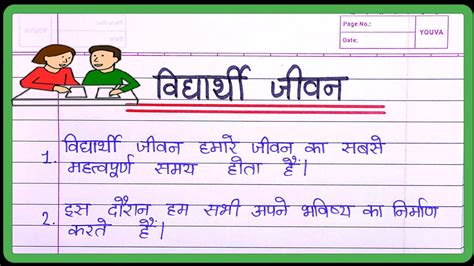 Page No.:
Date:
YOUVA
विद्यार्थी जीवन
1. विद्यार्थी जीवन हमारे जीवन का सबसे
महत्वपूर्ण समय होता है।
2. इस दौरान हम सभी अपने भविष्य का निर्माण
करते हैं।